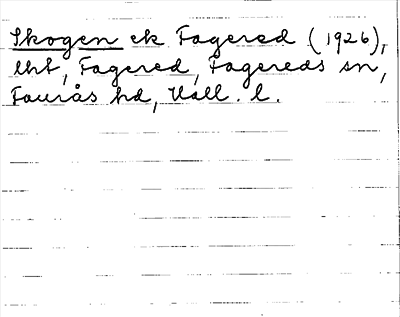 Skogen ek Fagered (1926),
lht, Fagered, Fagereds sn,
Faurås hd, Hall. l.